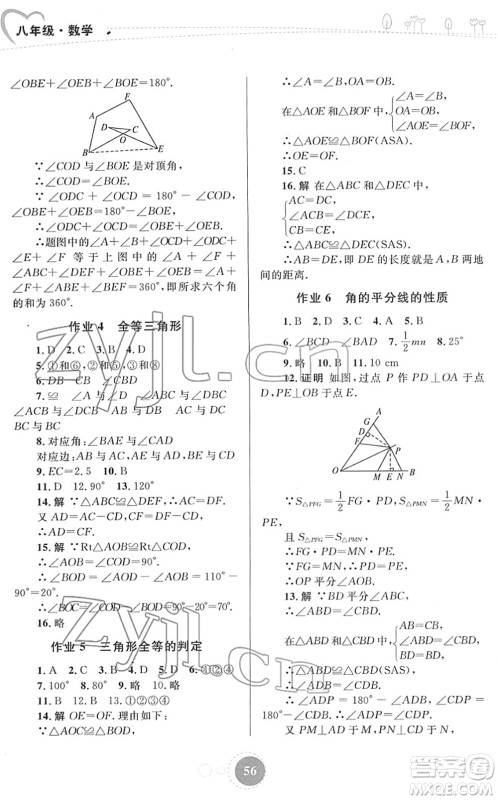 八年级·数学
∠OBE+∠OEB+∠BOE=180°.
A
F
D
C
O
B
E
∵∠COD与∠BOE是对顶角,
∴∠COD=∠BOE.
∵∠ODC+∠OCD=180°-∠COD,
∠OBE+∠OEB=180°-∠BOE,
∴∠ODC+∠OCD=∠OBE+∠OEB.
∴题图中的∠A+∠B+∠OCD+∠ODC+
∠E+∠F 等于上图中∠A+∠B+∠OBE+
∠OEB+∠E+∠F,所以所求六个角
的和为360°.
作业4 全等三角形
1.D 2.C 3.B 4.D
5.①和⑥,②和③,⑤和⑧
6.DB CB
7.≌ ∠ABC与∠DBC
∠ACB与∠DCB
8.对应角:∠BAC与
对应边:AB与AC,AE与AD,BE与CD
9.EC=2.5 10.B
11.D 12.90° 13.120°
14.解 ∵△ABC≌△DEF,∴AC=DF.
又AD=AC-CD,CF=DF-CD,
∴AD=CF.
15.解 ∵Rt△AOB≌Rt△COD,
∴∠AOB=∠COD.
∴∠BOC=∠AOD-∠AOB=110°-
∠COD,
16.略
作业5 三角形全等的判定
1.A 2.C 3.B 4.D 5.A 6.①②④
7.10° 8.80° 9.略 10.略
11.B 12.B 13.①②③④
14.解 OE=OF.理由如下:
∵△AOC≌△BOD,
∴∠A=∠B.
在△AOE和△BOF中,
∠A=∠B,
OA=OB,
∠AOE=∠BOF,
∴△AOE≌△BOF(ASA).
∴OE=OF.
15.C
16.解 在△ABC和△DEC中,
AC=DC,
∠ACB=∠DCE,
BC=EC,
∴△ABC≌△DEC(SAS).
∴AB=DE,即DE的长度就是A,B两地
间的距离.
作业6 角的平分线的性质
1.B 2.D 3.C 4.A 5.B
6.∠BCD ∠BAD 7.1/2 mn 8.25°
9.略 10.B 11.10 cm
12.证明 如图,过点P作PD⊥OA于点
D,PE⊥OB于点E.
A
G
D
F
P
O
M
E
N
B
∵S△PFG=1/2 FG·PD,S△PMN=1/2 MN·PE,
且S△PFG=S△PMN,
∴FG·PD=MN·PE.
∵FG=MN,∴PD=PE.
∴OP平分∠AOB.
13.解 ∵∠ABD=∠CBD,
∴∠ABD=
在△ABD和△CBD中,
AB=CB,
∠ABD=∠CBD,
BD=BD,
∴△ABD≌△CBD(SAS).
∴∠ADB=∠CDB.
∴180°-∠ADB=180°-∠CDB,
56
zyjl.cn
zyjl.cn
答案圈
MXQE.COM